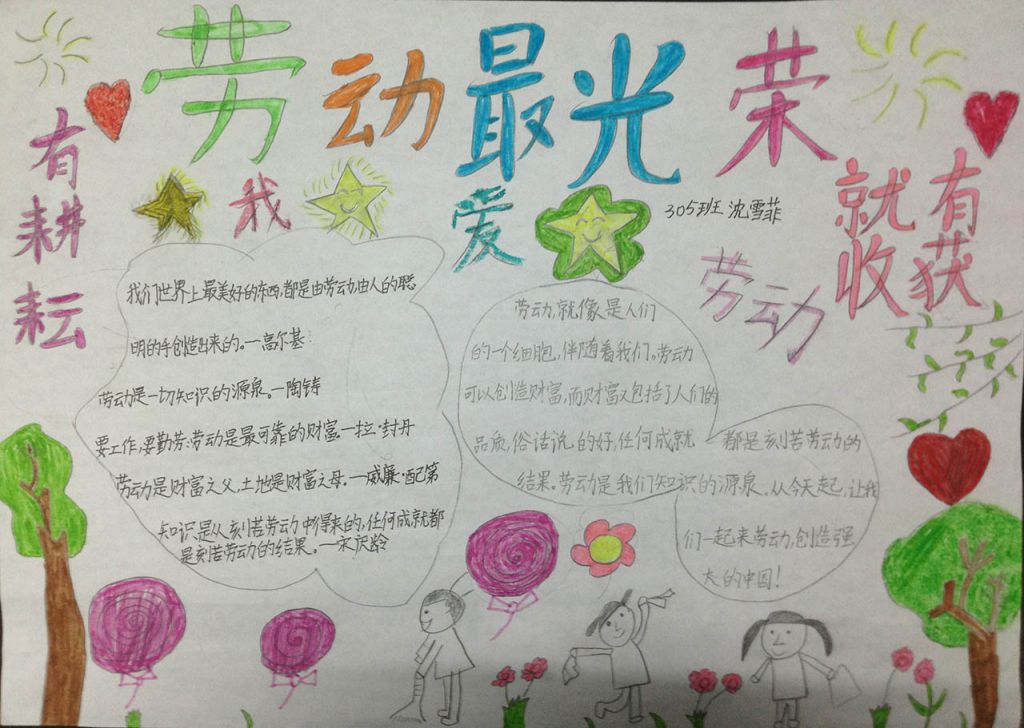 劳动最光荣
有耕耘
我爱劳动
305班 沈雪菲
就有收获
我们世界上最美好的东西,都是由劳动,由人的聪
明的手创造出来的。—高尔基:
劳动是一切知识的源泉。—陶铸
要工作,要勤劳:劳动是最可靠的财富—拉·封丹
劳动是财富之父,土地是财富之母。—威廉·配第
知识是从刻苦劳动中得来的,任何成就都
是刻苦劳动的结果。—宋庆龄
劳动,就像是人们
的一个细胞,伴随着我们。劳动
可以创造财富,而财富又包括了人们的
品质,俗话说的好,任何成就
都是刻苦劳动的
结果。劳动是我们知识的源泉。从今天起,让我
们一起来劳动,创造强
大的中国!